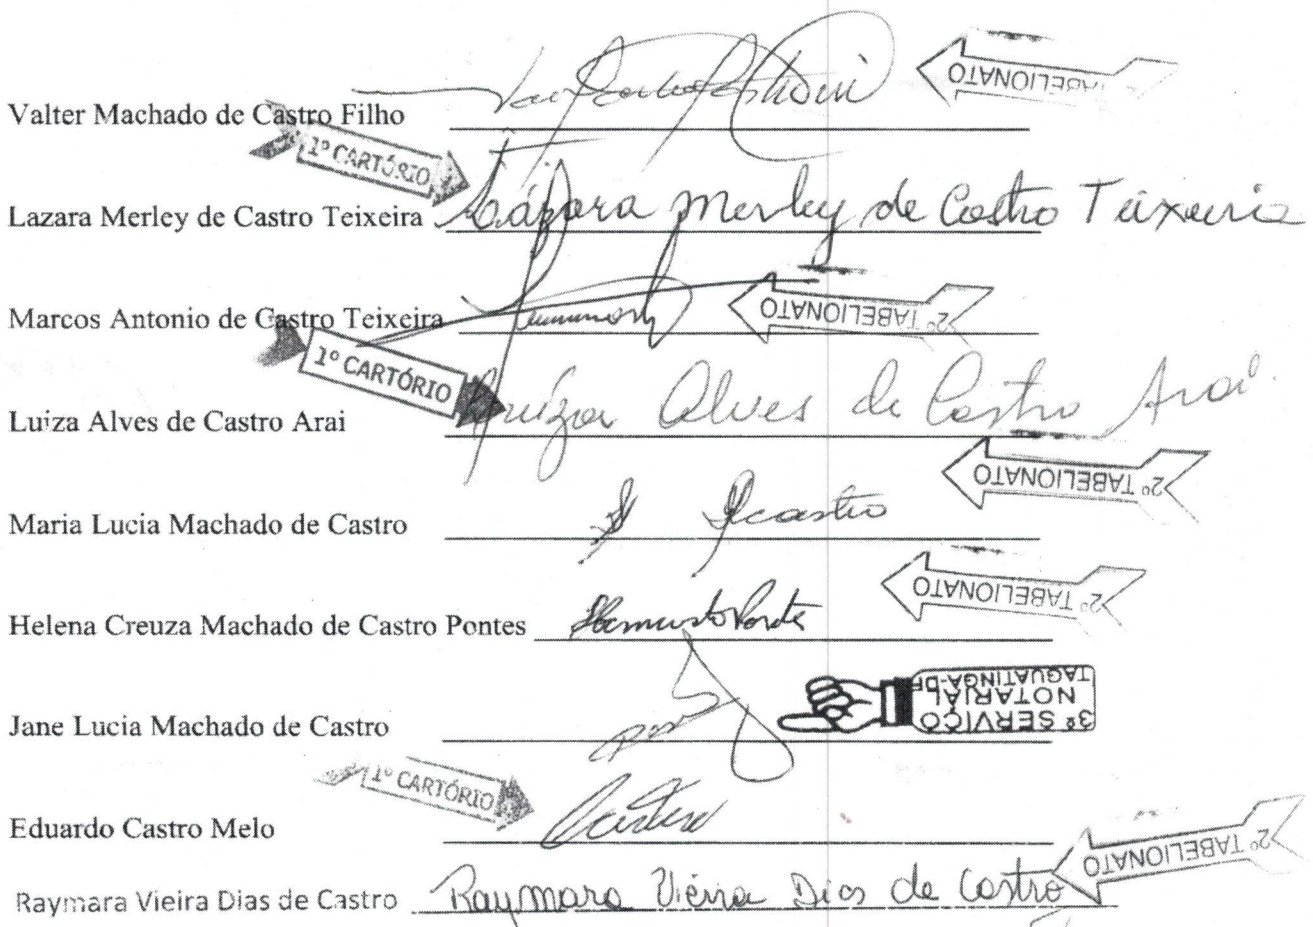 Valter Machado de Castro Filho
2º TABELIONATO
1º CARTÓRIO
Lazara Merley de Castro Teixeira Lázara Merley de Castro Teixeira
Marcos Antonio de Castro Teixeira
2º TABELIONATO
1º CARTÓRIO
Luiza Alves de Castro Arai Luiza Alves de Castro Arai
2º TABELIONATO
Maria Lucia Machado de Castro
2º TABELIONATO
Helena Creuza Machado de Castro Pontes
3º SERVIÇO
NOTARIAL
TAGUATINGA-DF
Jane Lucia Machado de Castro
1º CARTÓRIO
Eduardo Castro Melo
2º TABELIONATO
Raymara Vieira Dias de Castro Raymara Vieira Dias de Castro